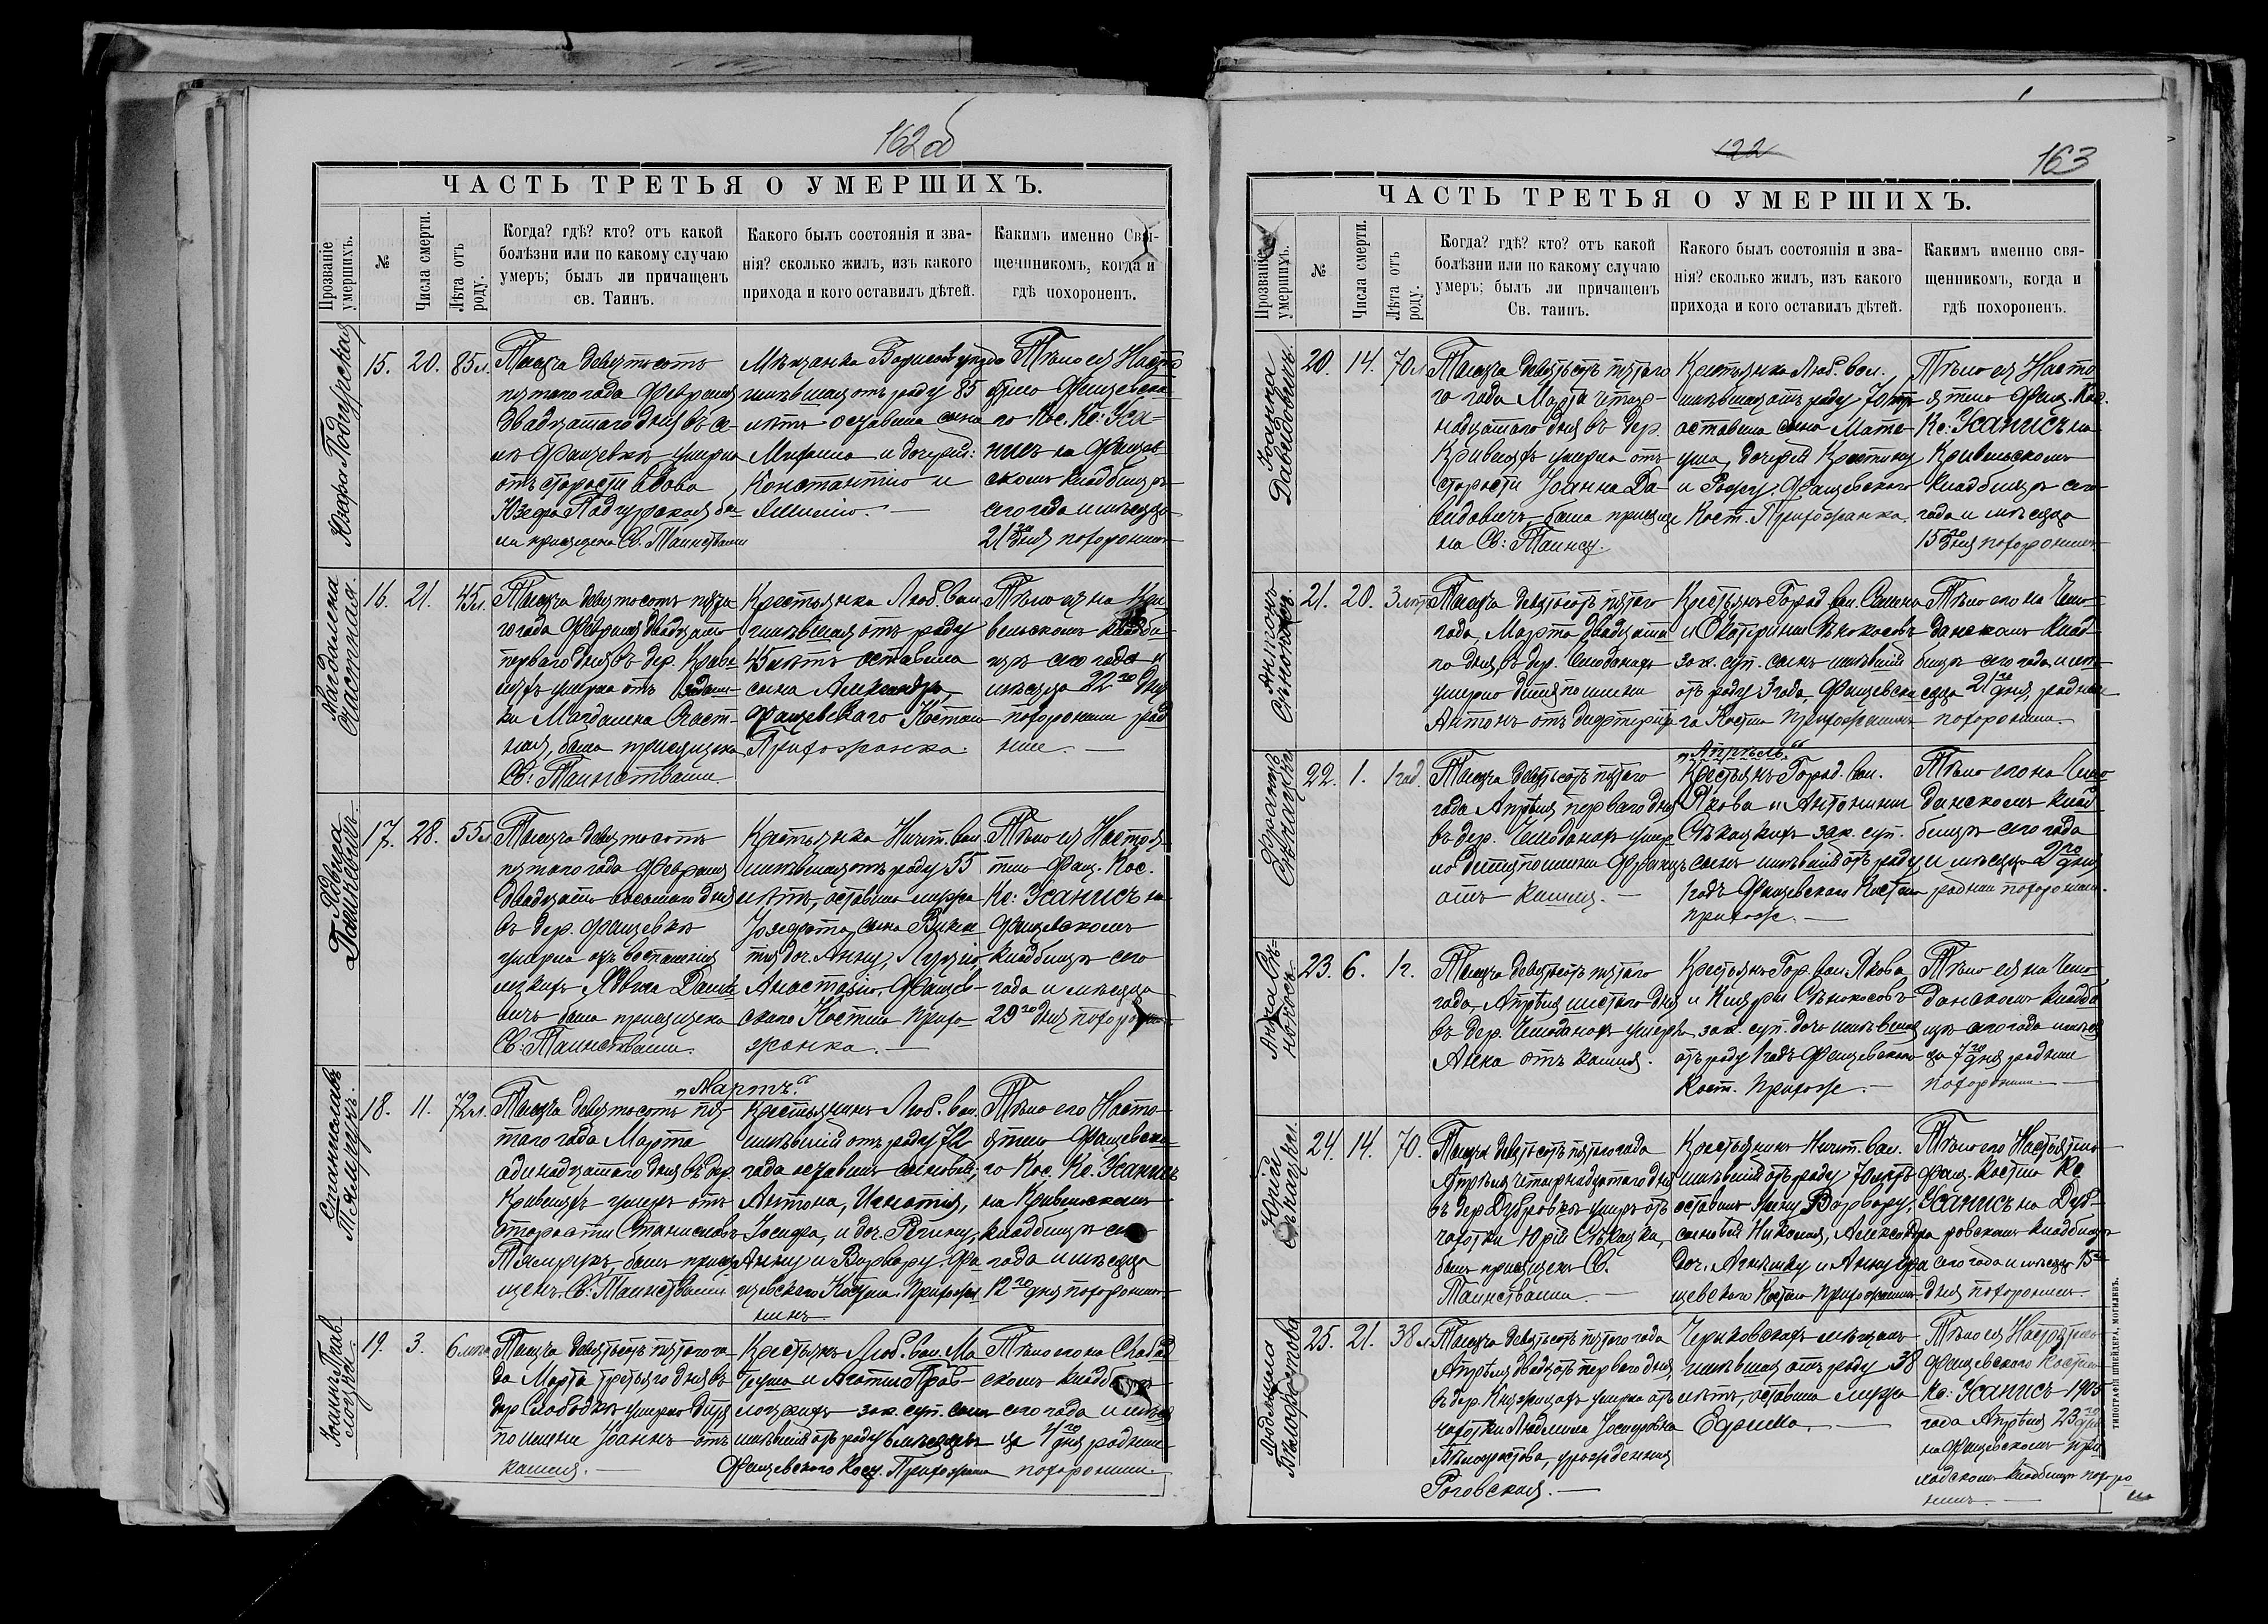 162об
ЧАСТЬ ТРЕТЬЯ О УМЕРШИХЪ.
Прозваніе умершихъ.
№
Числа смерти.
Лѣта отъ роду.
Когда? гдѣ? кто? отъ какой
болѣзни или по какому случаю
умеръ; былъ ли причащенъ
св. Таинъ.
Какого былъ состоянія и зва-
нія? сколько жилъ, изъ какого
прихода и кого оставилъ дѣтей.
Каким именно Свя-
щенникомъ, когда и
гдѣ похороненъ.
Юзефа Подгурская
15.
20.
85 л.
Тысяча девятьсотъ
пятаго года Февраля
двадцатаго дня въ
Фащевкѣ умерла
отъ старости вдова
Юзефа Подгурская бы-
ла причащена Св. Таинствами
Мѣщанка уѣзда
имѣвшая отъ роду 85
лѣтъ оставила сына
и дочерей:
Константію и
Эмилію. —
Тѣло ея Насто
ятель Фащевска-
го Кос. Кс: Жа-
нисъ на Фащев
скомъ кладбищѣ
сего года и мѣсяца
21го дня похоронилъ
Магдалена Счастная.
16.
21.
45 л.
Тысяча девятьсотъ пята-
го года Февраля двадцать
перваго дня въ дер. Криве
лахъ умерла отъ
Магдалена Счаст-
ная, была причащена
Св: Таинствами
Крестьянка Люб. вол.
имѣвшая отъ роду
45 лѣтъ оставила
сына Александра,
Фащевскаго Костел
Прихожанка.
Тѣло ея на Кри
вельскомъ кладби-
щѣ сего года и
мѣсяца 22го дня
похоронили род
ные. —
Ядвига Данилевичъ
17.
28.
55 л
Тысяча девятьсотъ
пятаго года Февраля
двадцать восьмаго дня
въ дер. Фащевкѣ
умерла отъ воспаленія
легкихъ Ядвига Данил
евичъ была причащена
Св: Таинствами.
Крестьянка Ничип. вол.
имѣвшая отъ роду 55
лѣтъ, оставила мужа
Іозефата, сына Викен
тія доч. Анну, Луцію
Анастазію, Фащев-
скаго Костела прихо
жанка. —
Тѣло ея Настоя
тель Фащ. Кос.
Кс: Жанисъ на
Фащевскомъ
кладбищѣ сего
года и мѣсяца
29го дня похоронил
„Мартъ“
Станиславъ
18.
11.
72 л.
Тысяча девятьсотъ пя-
таго года Марта
одинадцатаго дня въ дер.
Кривеляхъ умеръ отъ
старости Станиславъ
былъ прича
щенъ Св: Таинствами
Крестьянинъ Люб. вол.
имѣвшій отъ роду 72
года оставилъ сыновей,
Антона, Игнатія,
Іосифа, и доч. Регину,
Анну и Варвару. Фа
щевскаго Костела. Прихожа
нинъ
Тѣло его Насто-
ятель Фащевска-
го Кос. Кс. Жанисъ
на Кривельскомъ
кладбищѣ сего
года и мѣсяца
12го дня похоронилъ
Іоаннъ Прав-
лоцкій.
19.
3.
6 мѣс
Тысяча девятьсотъ пятаго го-
да Марта третьяго дня въ
дер Слободкѣ умерло дитя
по имени Іоаннъ отъ
кашля. —
Крестьянъ Люб. вол. Ма
теуша и Агаты Прав-
лоцкихъ зак. суп. сынъ
имѣвшій отъ роду 6 мѣсяцевъ
Фащевскаго Кост. Прихожанин
Тѣло его на Слобод
скомъ кладбищѣ
сего года и мѣся
ца 4го дня родные
похоронили.
122
163
ЧАСТЬ ТРЕТЬЯ О УМЕРШИХЪ.
Прозваніе умершихъ.
№
Числа смерти.
Лѣта отъ роду.
Когда? гдѣ? кто? отъ какой
болѣзни или по какому случаю
умеръ; былъ ли причащенъ
Св. таинъ.
Какого былъ состоянія и зва-
нія? сколько жилъ, изъ какого
прихода и кого оставилъ дѣтей.
Каким именно свя-
щенникомъ, когда и
гдѣ похороненъ.
Іоанна Давидовичъ.
20.
14.
70 л
Тысяча девятьсотъ пятаго
го года Марта четыр-
надцатаго дня въ дер.
Кривеляхъ умерла отъ
старости Іоанна Да-
видовичъ, была причаще
на Св: Таинъ.
Крестьянка Люб. вол.
имѣвшая отъ роду 70 лѣтъ
оставила сына Мате-
уша, дочерей Кристину
и Розу, Фащевскаго
Кост. Прихожанка.
Тѣло ея Насто-
ятель Фащ. Кос.
Кс: Жанисъ на
Кривельскомъ
кладбищѣ сего
года и мѣсяца
15го дня похоронилъ
Антонъ Сѣнокосъ.
21.
20.
3 лѣтъ
Тысяча девятьсотъ пятаго
года, Марта двадцата
го дня, въ дер. Чемоданахъ
умерло дитя по имени
Антонъ отъ дифтерита
Крестьянъ Город. вол. Семена
и Екатерины Сѣнокосовъ
зак. суп. сынъ имѣвшій
отъ роду 3 года, Фащевска
го Костел прихожанинъ
Тѣло его на Чемо-
данскомъ клад-
бищѣ сего года и мѣ-
сяца 21го дня, родные
похоронили. —
„Апрѣль“
22.
1.
1 год.
Тысяча девятьсотъ пятаго
года Апрѣля перваго дня
въ дер. Чемоданахъ умер
ло дитя по имени Францъ
отъ кашля. —
Крестьянъ Город. вол.
Якова и Антонины
Сѣкацкихъ зак. суп.
сынъ имѣвшій отъ роду
1 годъ Фащевскаго Костел
прихож. —
Тѣло его на Чемо
данскомъ клад
бищѣ сего года
и мѣсяца 2го дня
родные похоронили.
Анна Сѣ-
нокосъ
23.
6.
1 г.
Тысяча девятьсотъ пятаго
года, Апрѣля шестаго дня
въ дер. Чемоданахъ умерла
Анна отъ кашля.
Крестьянъ Гор. вол. Якова
и Клары Сѣнокосовъ
зак. суп. дочь имѣвшая
отъ роду 1 годъ Фащевскаго
Кост. Прихож. —
Тѣло ея на Чемо-
данскомъ кладби
щѣ сего года и мѣся
ца 7го дня родные
похоронили. —
Юрій Сѣкацкій
24.
14.
70.
Тысяча девятьсотъ пятаго года
Апрѣля четырнадцатаго дня
въ дер Дубровкѣ умеръ отъ
чахотки Юрій Сѣкацкій,
былъ причащенъ Св.
Таинствами. —
Крестьянинъ Ничип. вол.
имѣвшій отъ роду 70 лѣтъ
оставилъ жену Варвару,
сыновей Николая, Александра
доч. Агнешку и Анну Фа
щевскаго Костела прихожанинъ
Тѣло его Настоятель
Фащ. Костела Кс
Жанисъ на Дуб-
ровскомъ кладбищѣ
сего года и мѣсяца 15го
дня похоронилъ.
Людмила
25.
21.
38 л
Тысяча девятьсотъ пятаго года
Апрѣля двадцать перваго дня,
въ дер. Княжицахъ умерла отъ
чахотки Людмила Іосифовна
урожденная
Роговская. —
Чериковскихъ мѣщанъ
имѣвшая отъ роду 38
лѣтъ, оставила мужа
Ефима. —
Тѣло ея Настоятель
Фащевского Костела
Кс: Жанисъ 1905
года Апрѣля 23го дня
на Фащевскомъ при
ходскомъ кладбищѣ похоро
нилъ. —
ТИПОГРАФІЯ ШНЕЙДЕРА, МОГИЛЕВЪ.